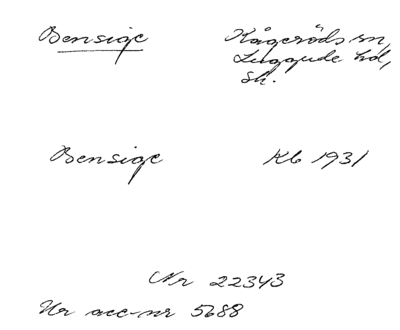 Bensige Kågeröds sn,
Luggude hd,
Sk.
Bensige Kb 1931
Nr 22343
Ur acc-nr 5688